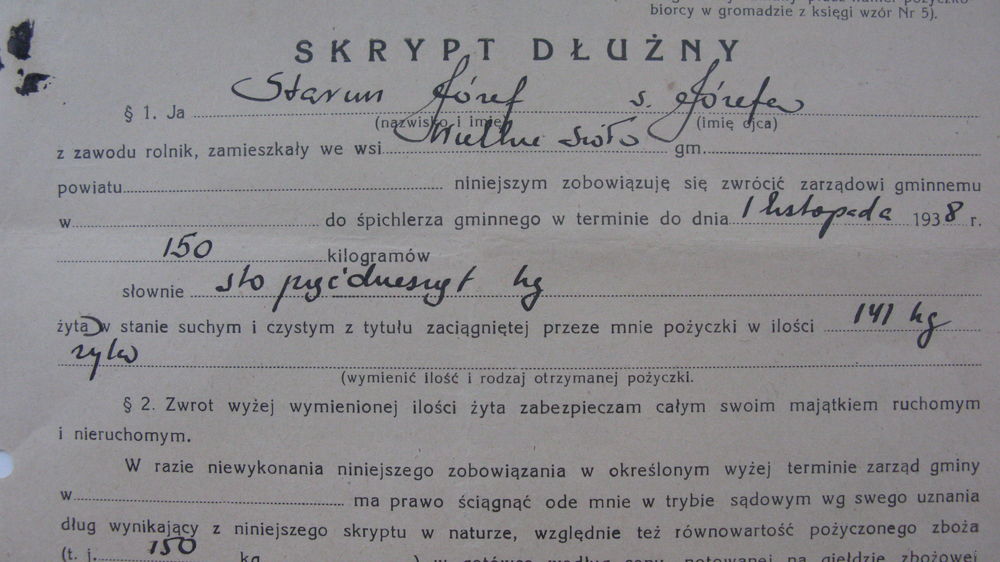 biorcy w gromadzie z księgi wzór Nr 5).
SKRYPT DŁUŻNY
§ 1. Ja Starun Józef s. Józefa
(nazwisko i imię) (imię ojca)
z zawodu rolnik, zamieszkały we wsi Wielkie sioło gm.
powiatu niniejszym zobowiązuję się zwrócić zarządowi gminnemu
w do śpichlerza gminnego w terminie do dnia 1 listopada 1938 r.
150 kilogramów
słownie sto pięćdziesiąt kg
żyta w stanie suchym i czystym z tytułu zaciągniętej przeze mnie pożyczki w ilości 141 kg
żyta
(wymienić ilość i rodzaj otrzymanej pożyczki.
§ 2. Zwrot wyżej wymienionej ilości żyta zabezpieczam całym swoim majątkiem ruchomym
i nieruchomym.
W razie niewykonania niniejszego zobowiązania w określonym wyżej terminie zarząd gminy
w ma prawo ściągnąć ode mnie w trybie sądowym wg swego uznania
dług wynikający z niniejszego skryptu w naturze, względnie też równowartość pożyczonego zboża
(t. j. 150 kg ) w gotówce według ceny, notowanej na giełdzie zbożowej